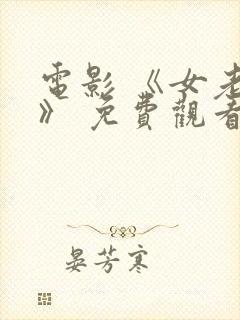 電影《女老
》 免費觀看
晏芳寒